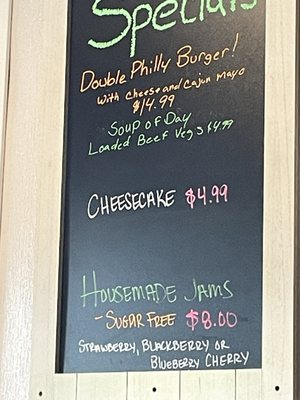 Specials
Double Philly Burger!
with cheese and Cajun Mayo
$14.99
Soup of Day
Loaded Beef Veg $4.99
CHEESECAKE $4.99
HOUSEMADE JAMS
- SUGAR FREE $8.00
STRAWBERRY, BLACKBERRY OR
BLUEBERRY CHERRY